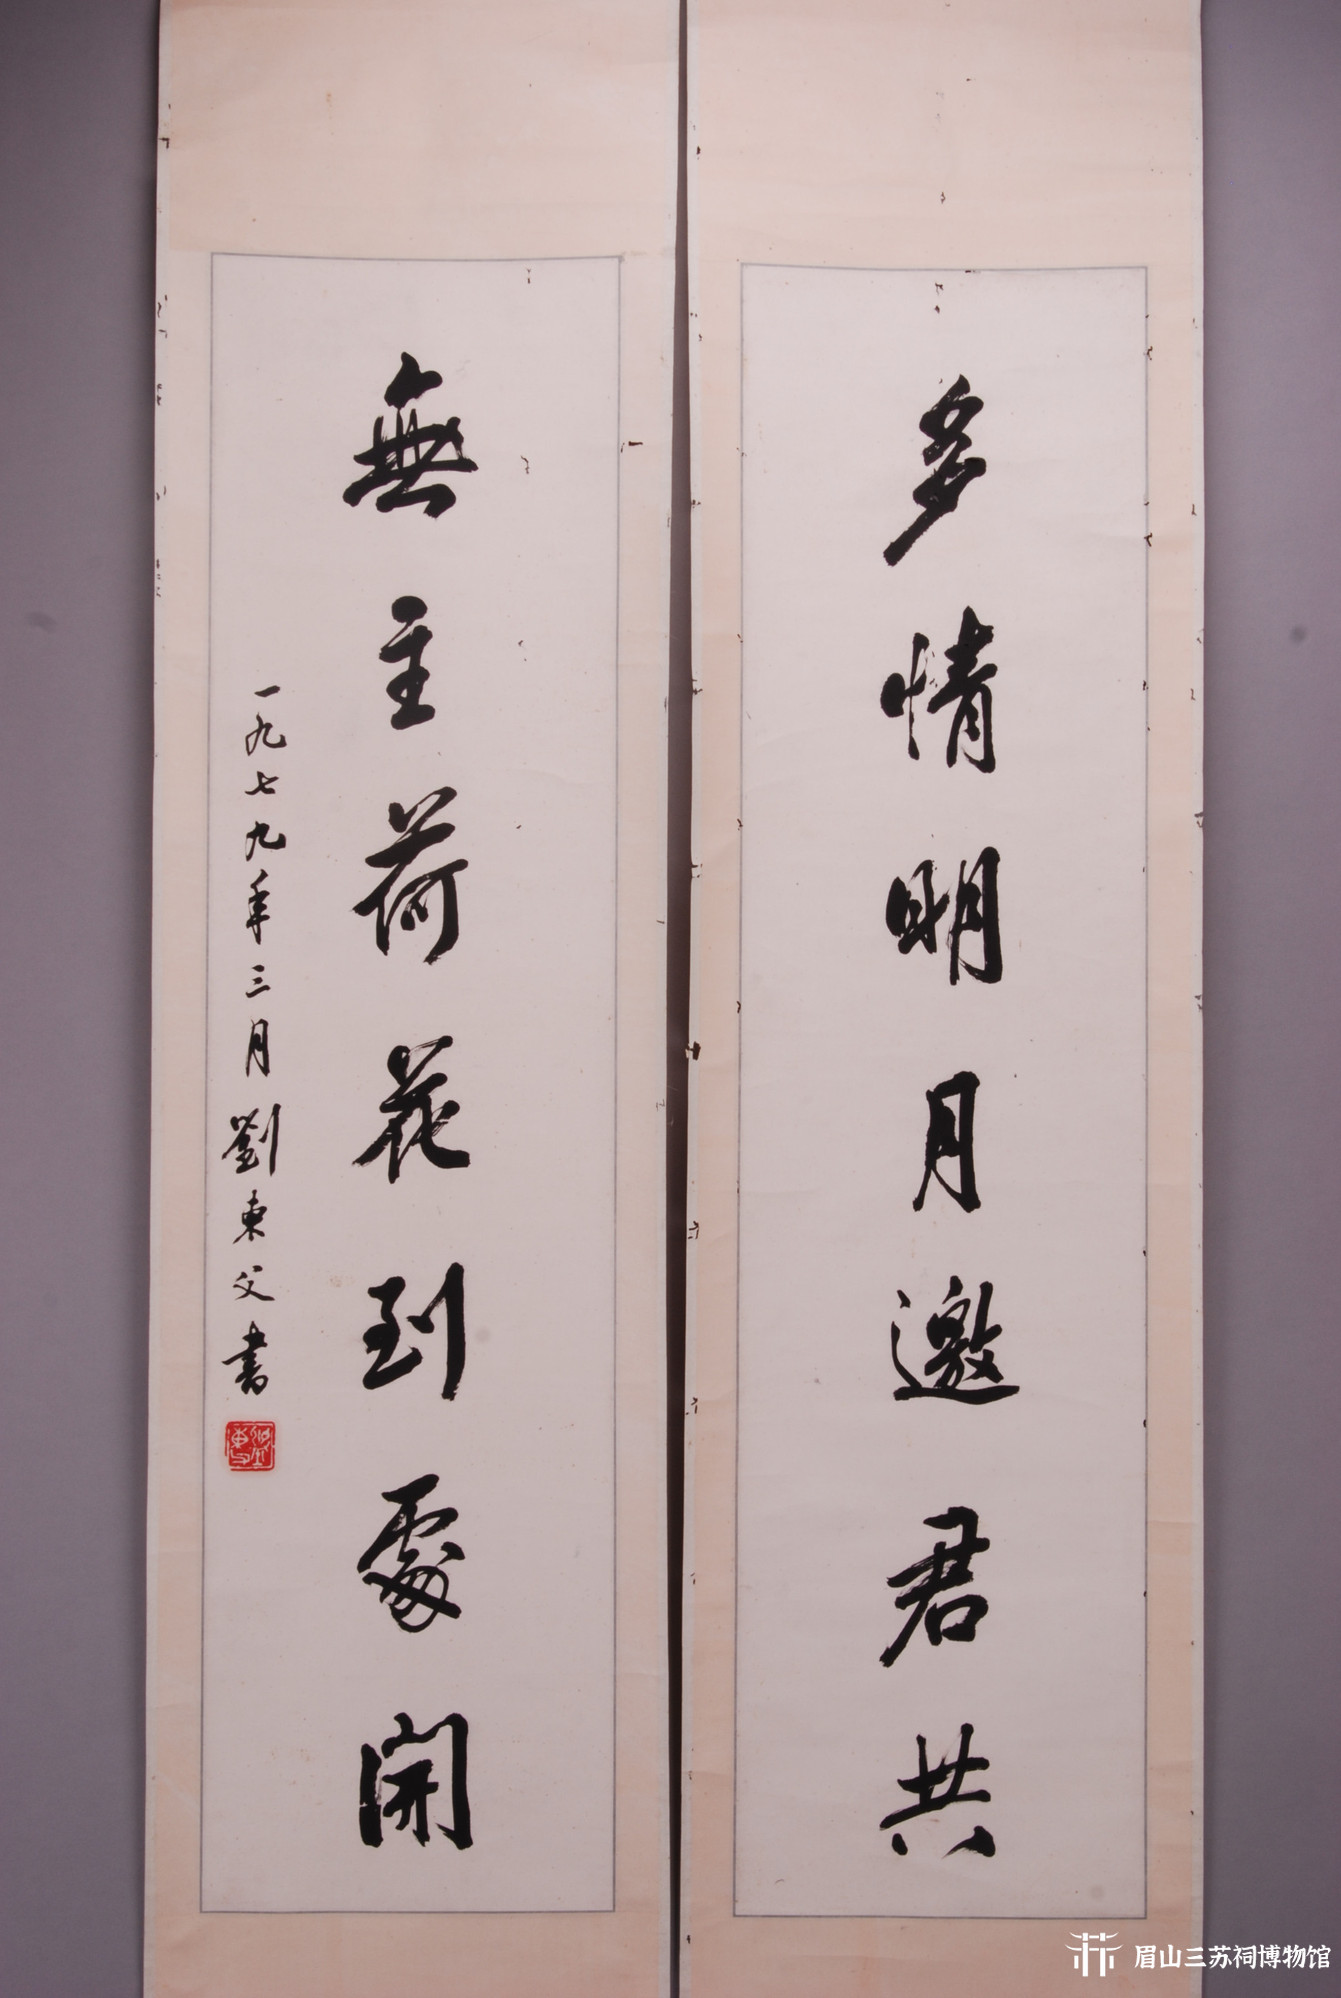 多情明月邀君共
無主荷花到處開
一九七九年三月劉東父書
劉東父
眉山三苏祠博物馆